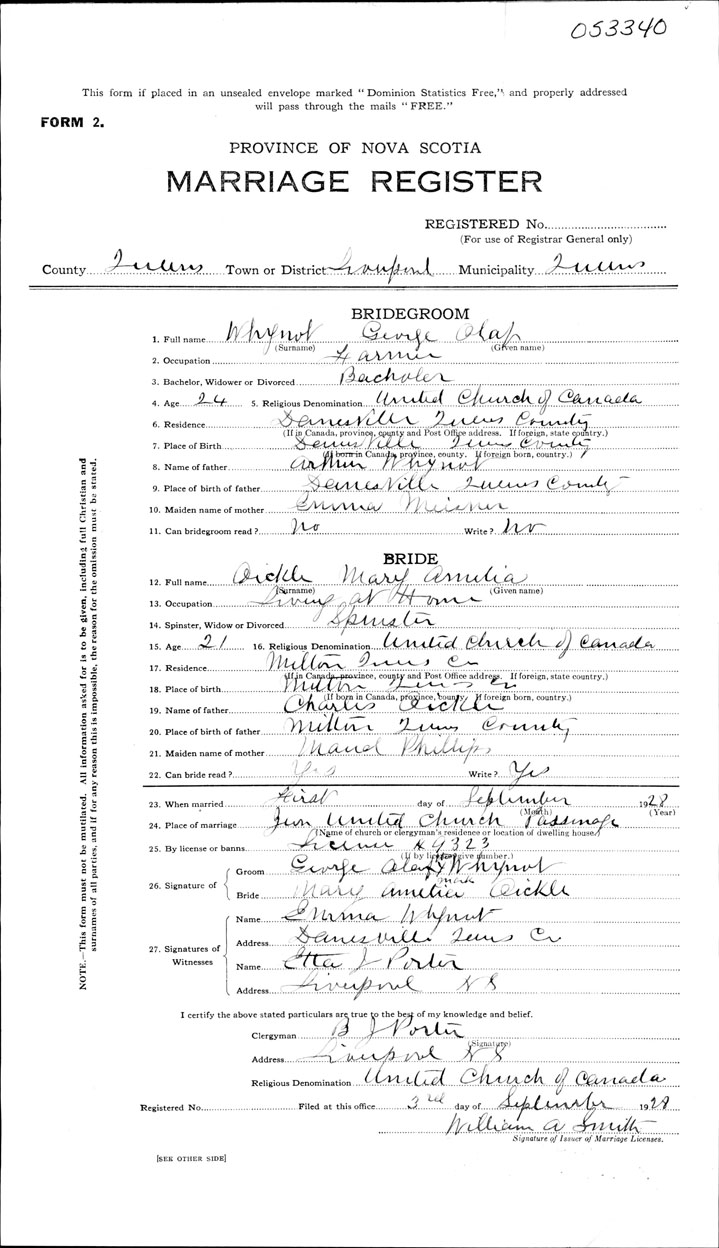 053340
This form if placed in an unsealed envelope marked "Dominion Statistics Free," and properly addressed
will pass through the mails "FREE."
FORM 2.
PROVINCE OF NOVA SCOTIA
MARRIAGE REGISTER
REGISTERED No.
(For use of Registrar General only)
County Queens Town or District Liverpool Municipality Queens
BRIDEGROOM
1. Full name Whynot George Olaf
(Surname) (Given name)
2. Occupation Farmer
3. Bachelor, Widower or Divorced Bacholer
4. Age 24 5. Religious Denomination United Church of Canada
6. Residence Danesville Queens County
(If in Canada, province, county and Post Office address. If foreign, state country.)
7. Place of Birth Danesville Queens County
(If born in Canada, province, county. If foreign born, country.)
8. Name of father Arthur Whynot
9. Place of birth of father Danesville Queens County
10. Maiden name of mother Emma Meisner
11. Can bridegroom read? No Write? No
BRIDE
12. Full name Oickle Mary Amelia
(Surname) (Given name)
13. Occupation Living at Home
14. Spinster, Widow or Divorced Spinster
15. Age 21 16. Religious Denomination United Church of Canada
17. Residence Milton Queens Co
(If in Canada, province, county and Post Office address. If foreign, state country.)
18. Place of birth Milton Queens Co
(If born in Canada, province, county. If foreign born, country.)
19. Name of father Charles Oickle
20. Place of birth of father Milton Queens County
21. Maiden name of mother Maud Phillips
22. Can bride read? Yes Write? Yes
23. When married First day of September 1928
(Month) (Year)
24. Place of marriage United Church Parsonage
(Name of church or clergyman's residence or location of dwelling house.)
25. By license or banns License 49323
(If by license give number.)
26. Signature of
Groom George Olaf X Whynot
mark
Bride Mary Amelia Oickle
27. Signatures of Witnesses
Name Emma Whynot
Address Danesville Queens Co
Name Etta J Porter
Address Liverpool N S
I certify the above stated particulars are true to the best of my knowledge and belief.
Clergyman B J Porter
(Signature)
Address Liverpool N S
Religious Denomination United Church of Canada
Registered No. Filed at this office 3rd day of September 1928
William A Smith
Signature of Issuer of Marriage Licenses.
[SEE OTHER SIDE]
NOTE.—This form must not be mutilated. All information asked for is to be given, including full Christian and
surnames of all parties, and if for any reason this is impossible, the reason for the omission must be stated.